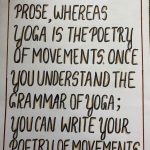 PROSE, WHEREAS
YOGA IS THE POETRY
OF MOVEMENTS. ONCE
YOU UNDERSTAND THE
GRAMMAR OF YOGA;
YOU CAN WRITE YOUR
POETRY OF MOVEMENTS